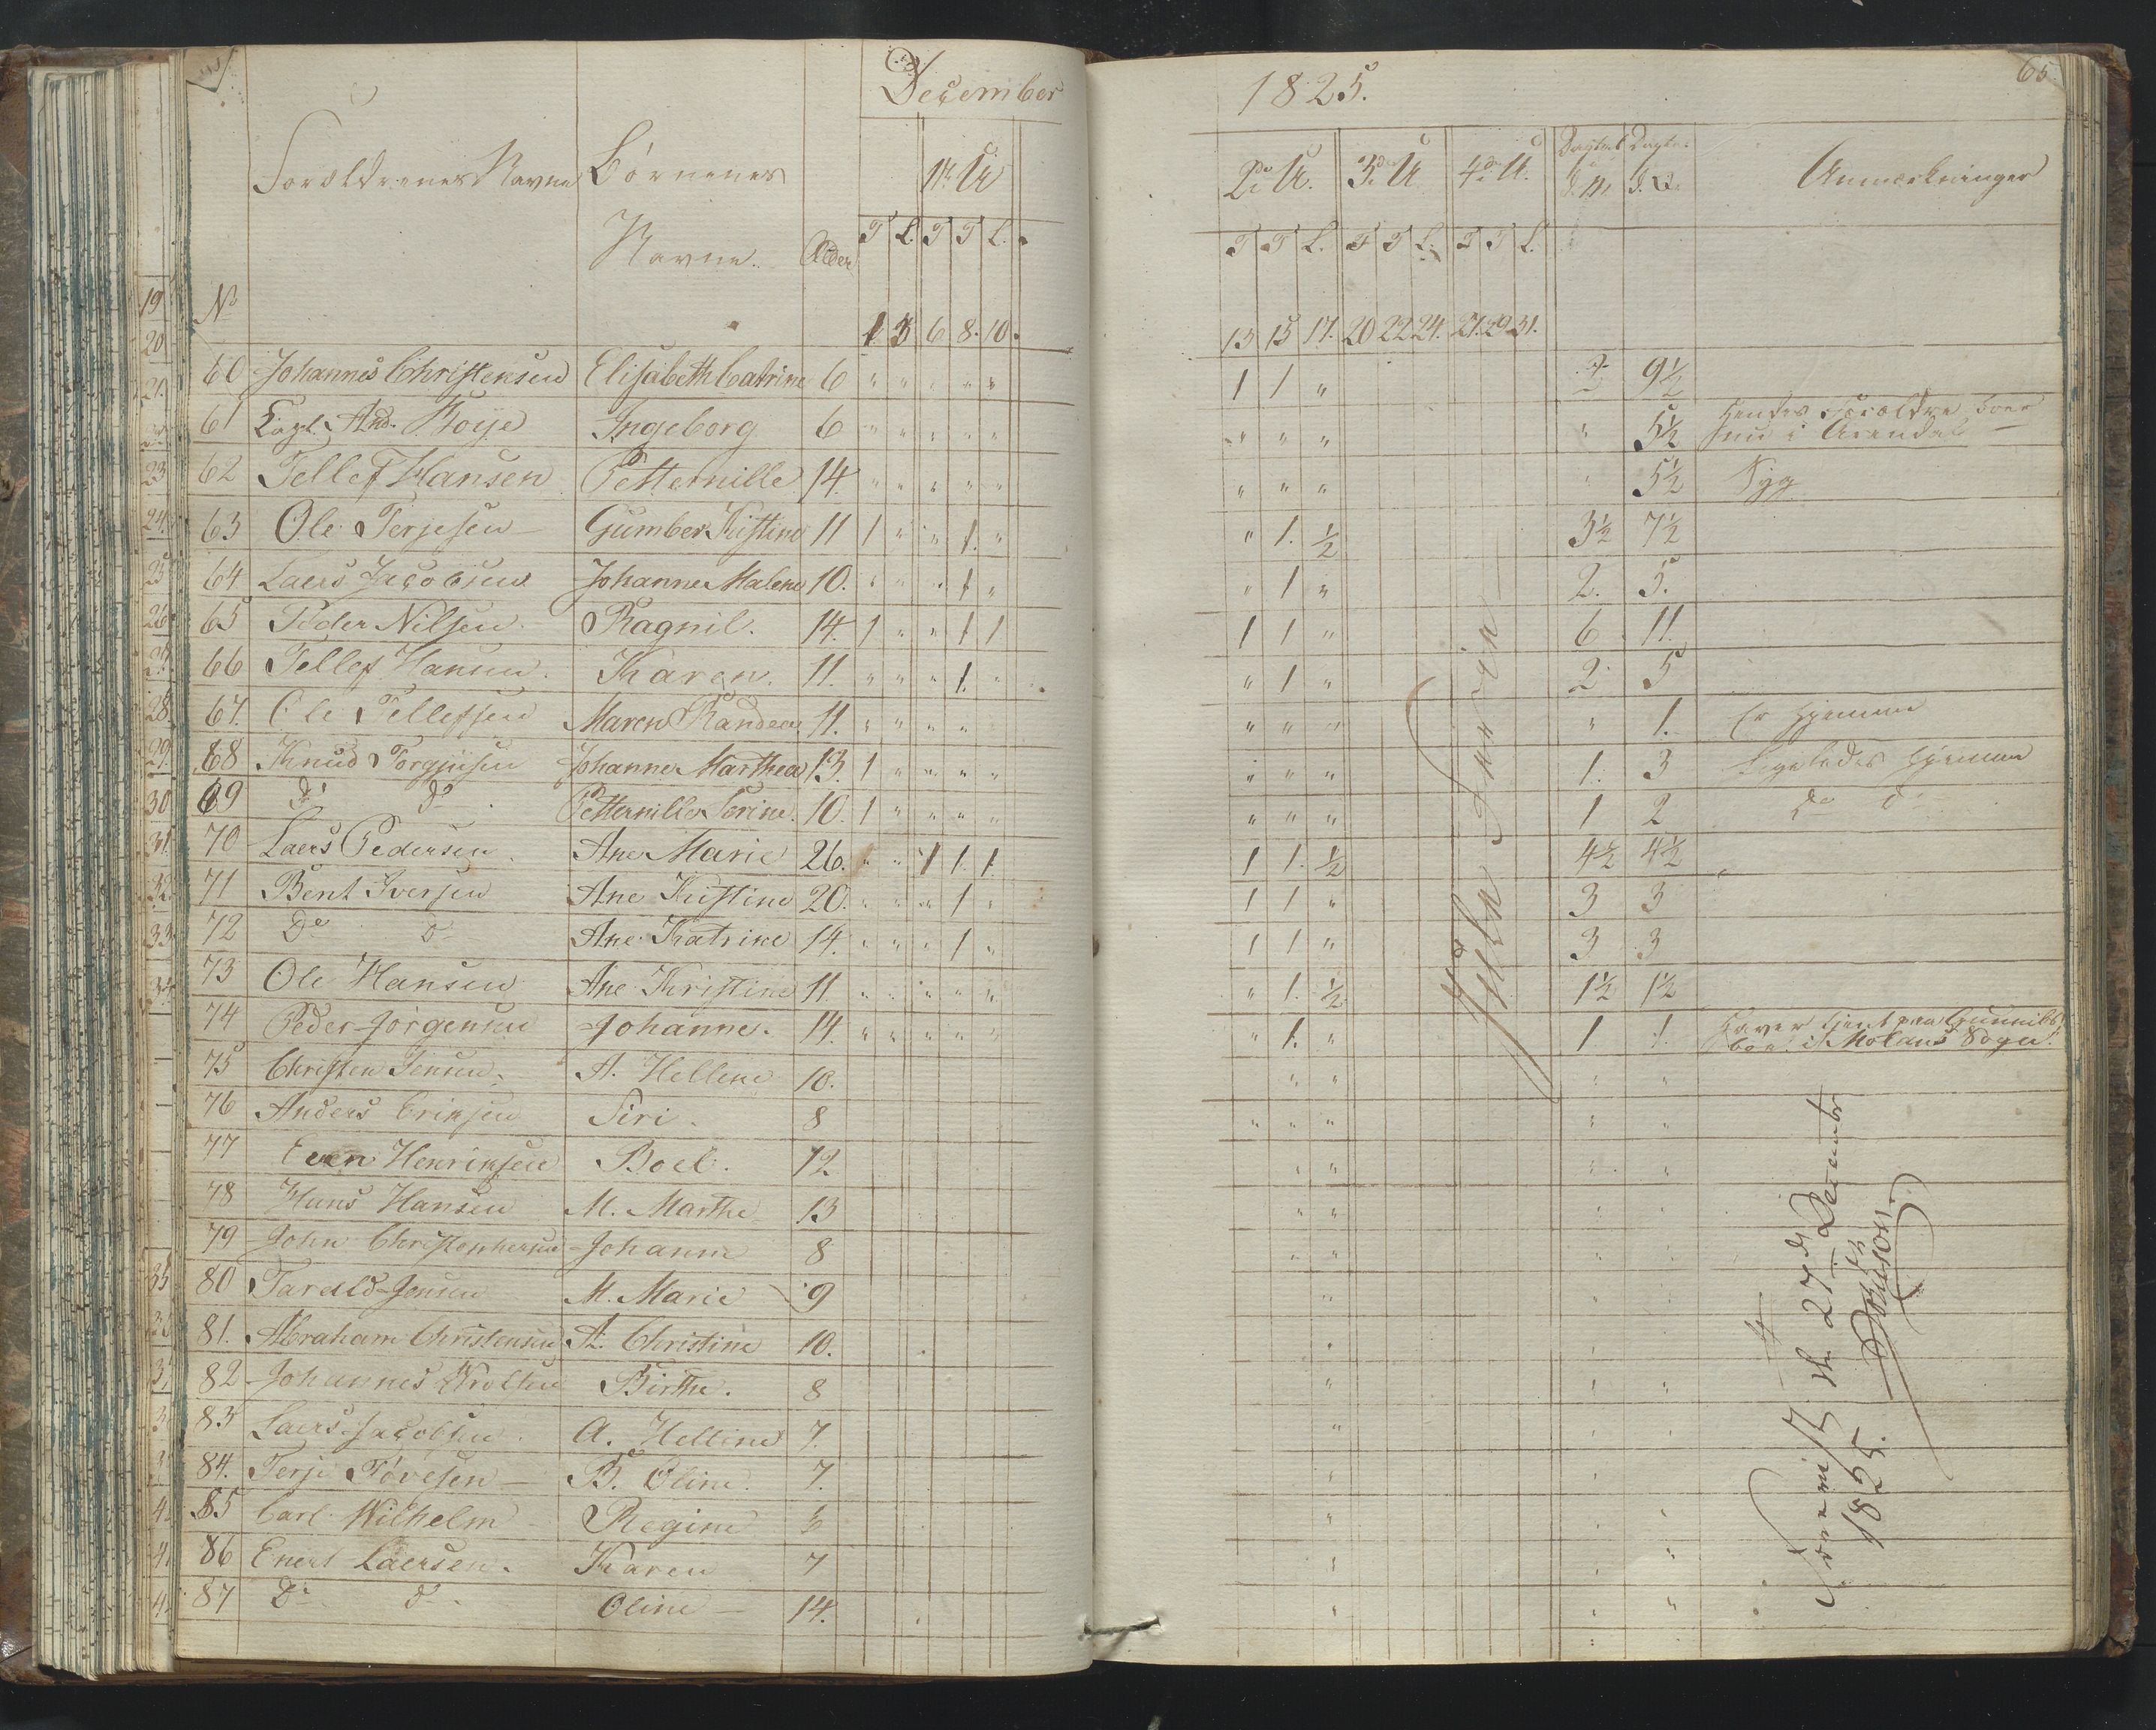 December 1825. 65
Forældrenes Navne Børnenes Navne. Alder 1te U 2de U. 3de U 4de U. Anmærkninger
T L. T T L. T T L. T T L. T T L.
No 1 3 6 8. 10. 13 15 17. 20 22 24. 27. 29 31.
60 Johannes Christensen Elisabeth Catrine 6 " " " " " 1 1 " 2 9½
61 And. Boye Ingeborg 6 " " " " " " " " " 5½ hendes Forældre boer
nu i Arendal
62 Tellef Hansen Petternille 14. " " " " " " " " " 5½ Syg
63 Ole Terjesen Gumber Kistine 11 1 " " 1. " " 1. ½ 3½ 7½
64 Laers Jacobsen Johanne Malene 10. " " " 1 " " 1 " 2. 5.
65 Peder Nilsen. Ragnil. 14. 1 " " 1 1 1 1 " 6 11.
66 Tellef Hansen. Karen. 11. " " " 1. " " 1 " 2 5
67. Ole Tellefsen Maren Randea 11. " " " " " " " " " 1. Er hjemme
68 Knud Torgjusen Johanne Marthea 13. 1 " " " " " " " 1. 3 Ligeledes hjemme
69 do do Petternille Serine. 10. 1 " " " " " " " 1 2 do do
70 Laers Pedersen Ane Marie 26. " " 1 1. 1. 1 1. ½ 4½ 4½
71 Bent Iversen Ane Kistine 20. " " " 1 " 1 1 " 3 3
72 do do Ane Katrine 14. " " " 1 " 1 1 " 3 3
73 Ole Hansen Ane Kristine 11. " " " " " " 1. ½ 1½ 1½
74 Peder Jørgensen Johanne. 14. " " " " " " 1. " 1 1. haver tjent paa Gunnils
boe i Molans Sogn.
75 Christen Jensen. A. Hellene 10. " " " "
76 Anders Eriksen Siri. 8 " " " " "
77 Even Henriksen Boel. 12 " " " "
78 Hans Hansen M. Marthe 13 " " " "
79 John Christophersen Johanne 8 " " " "
80 Tarald Jensen M. Marie 9 " " "
81. Abraham Christensen A. Christine 10. " "
82 Johannes Wrolsen Birthe. 8 " " "
83 Laers Jacobsen. A. Helline 7. " " "
84. Terje Tøvesen B. Oline. 7. " "
85 Carl Wilhelm Regine 6 " " "
86 Enert Laersen. Karen 7 " "
87 do do Oline 14. " " "
Jule Ferien
Foreviist, de 27de December
1825.